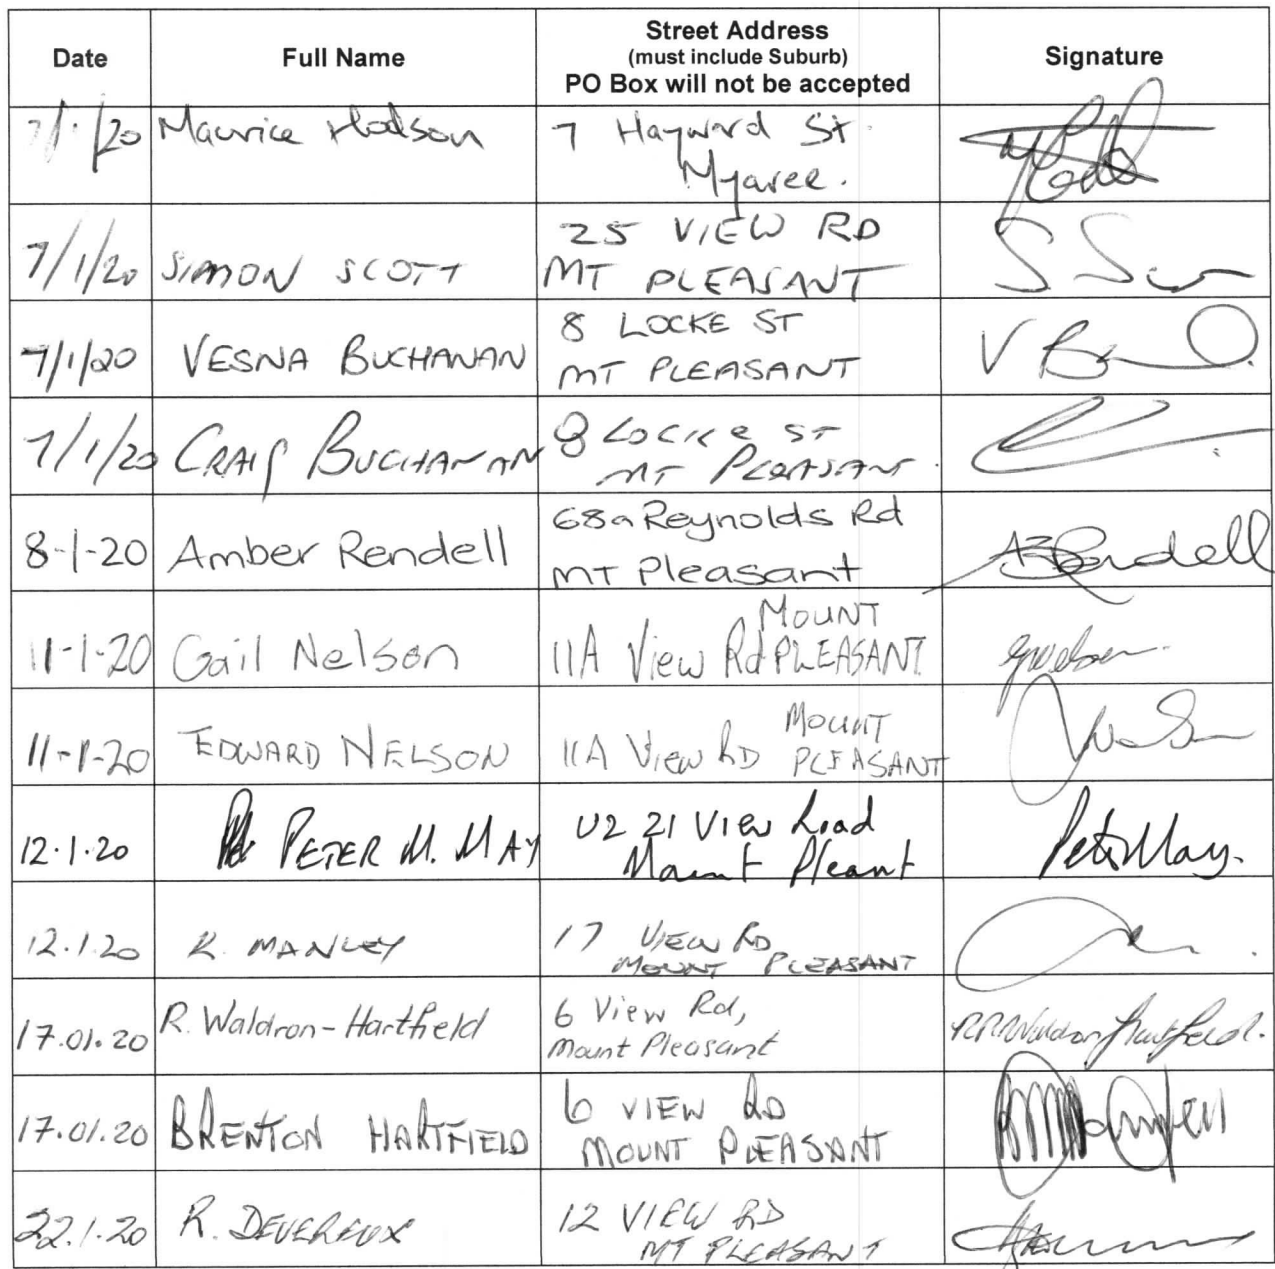 Date Full Name Street Address Signature
(must include Suburb)
PO Box will not be accepted
7/1/20 Maurice Hodson 7 Hayward St
Myaree.
7/1/20 SIMON SCOTT 25 VIEW RD
MT PLEASANT
S S
7/1/20 VESNA BUCHANAN 8 LOCKE ST
MT PLEASANT
V B
7/1/20 CRAIG BUCHANAN 8 Locke ST
MT PLEASANT.
8-1-20 Amber Rendell 68a Reynolds Rd
MT Pleasant
Rendell
11-1-20 Gail Nelson 11A View Rd MOUNT
PLEASANT
11-1-20 EDWARD NELSON 11A View RD MOUNT
PLEASANT
12.1.20 PETER M. MAY U2 21 View Road
Mount Pleant
Peter May.
12.1.20 R. MANLEY 17 VIEW RD
MOUNT PLEASANT
17.01.20 R. Waldron-Hartfield 6 View Rd,
Mount Pleasant
Waldron Hartfield.
17.01.20 BRENTON HARTFIELD 6 VIEW RD
MOUNT PLEASANT
22.1.20 R. DEVEREUX 12 VIEW RD
MT PLEASANT